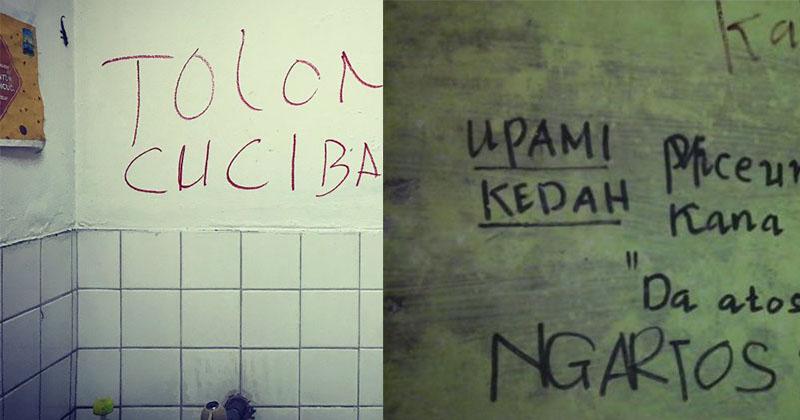 TOLON
CUCIBA
Ka
UPAMI
KEDAH
Piceun
Kana
"Da atos
NGARTOS